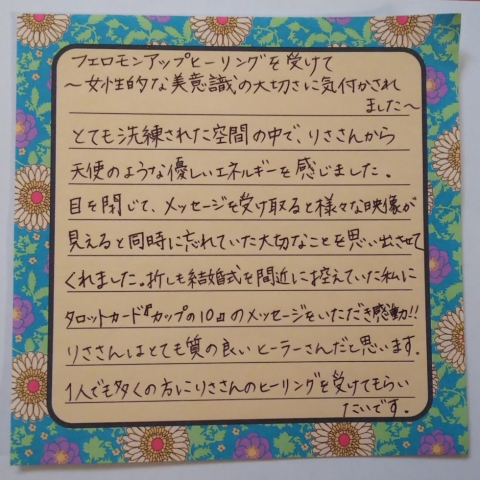 フェロモンアップヒーリングを受けて
～女性的な美意識の大切さに気付かされ
ました～
とても洗練された空間の中で、りささんから
天使のような優しいエネルギーを感じました。
目を閉じて、メッセージを受け取ると様々な映像が
見えると同時に忘れていた大切なことを思い出させて
くれました。折しも結婚式を間近に控えていた私に
タロットカード『カップの10』のメッセージをいただき感動!!
りささんはとても質の良いヒーラーさんだと思います。
1人でも多くの方にりささんのヒーリングを受けてもらい
たいです。